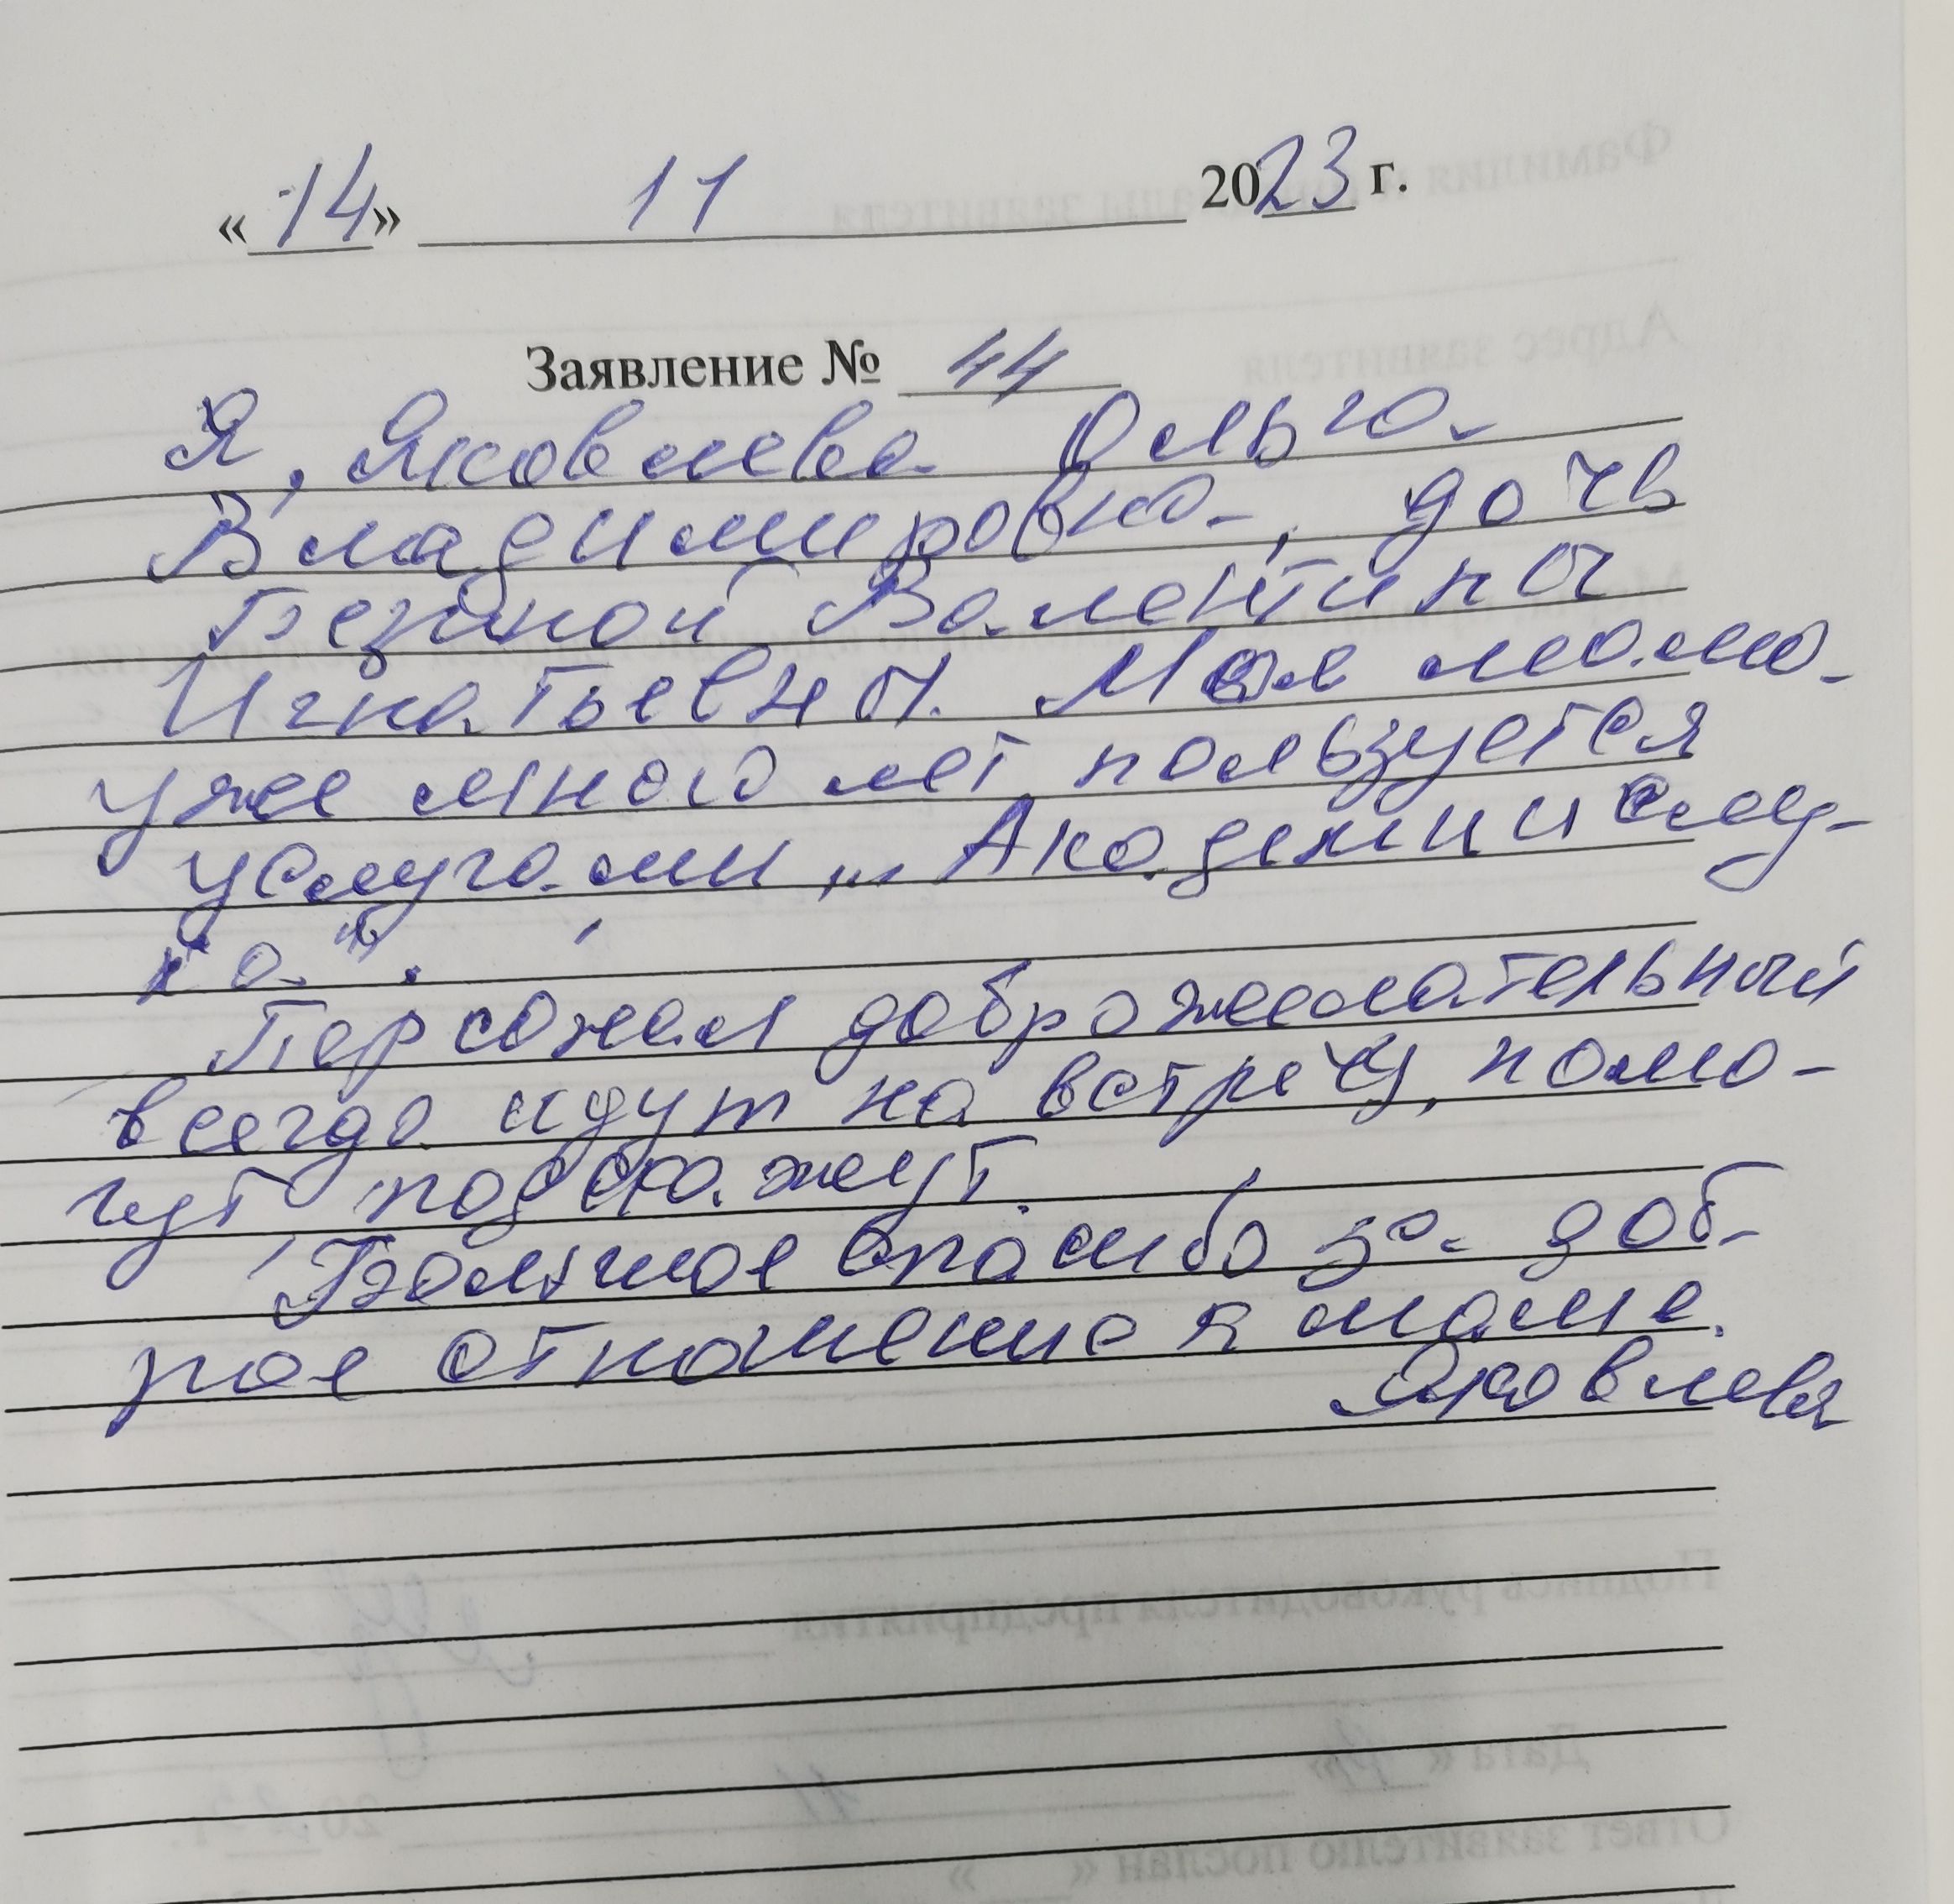 «14» 11 2023 г.
Заявление № 44
Я, Яковлева Ольга
Владимировна, дочь
Безиной Валентины
Игнатьевны. Моя мама
уже много лет пользуется
услугами „Академии слу-
ха".
Персонал доброжелательный
всегда идут на встречу, помо-
гут подскажут.
Большое спасибо за доб-
рое отношение к маме.
Яковлева